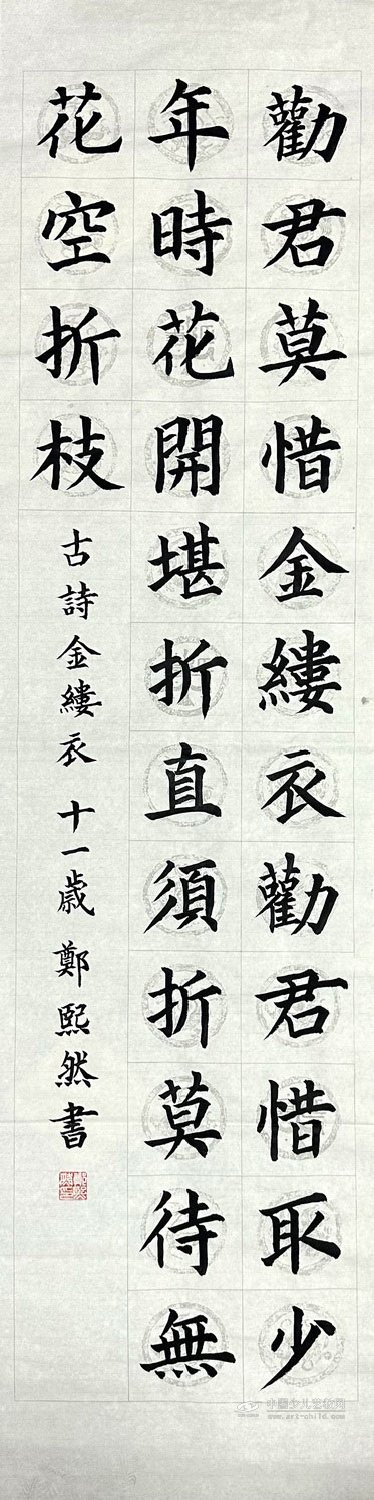 勸君莫惜金縷衣勸君惜取少
年時花開堪折直須折莫待無
花空折枝
古詩金縷衣 十一歲 鄭熙然書
中國少儿艺教网
www.art-child.com